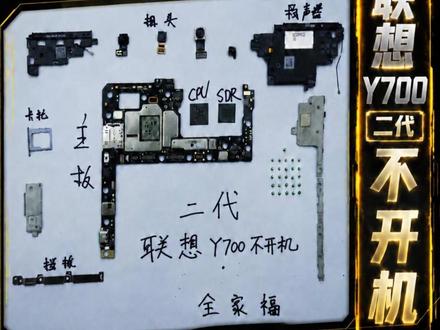 摄头
扬声器
CPU
SDR
卡托
主板
按键
二代
联想Y700不开机
全家福
联想
Y700
二代
不开机